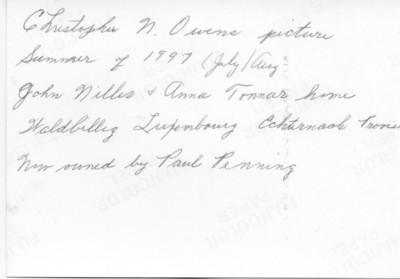 Christopher N. Owens picture
Summer of 1997 (July/Aug
John Nilles & Anna Tonnar home
Waldbillig Luxembourg Echternach
Now owned by Paul Penning